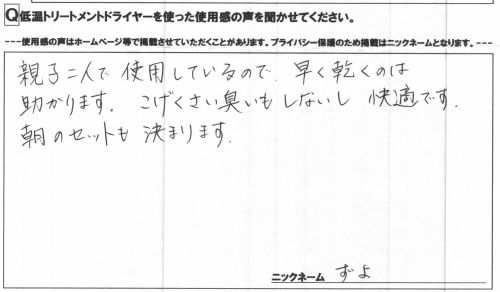 Q低温トリートメントドライヤーを使った使用感の声を聞かせてください。
---使用感の声はホームページ等で掲載させていただくことがあります。プライバシー保護のため掲載はニックネームとなります。---
親子二人で使用しているので、早く乾くのは
助かります。こげくさい臭いもしないし快適です。
朝のセットも決まります。
ニックネーム ずよ